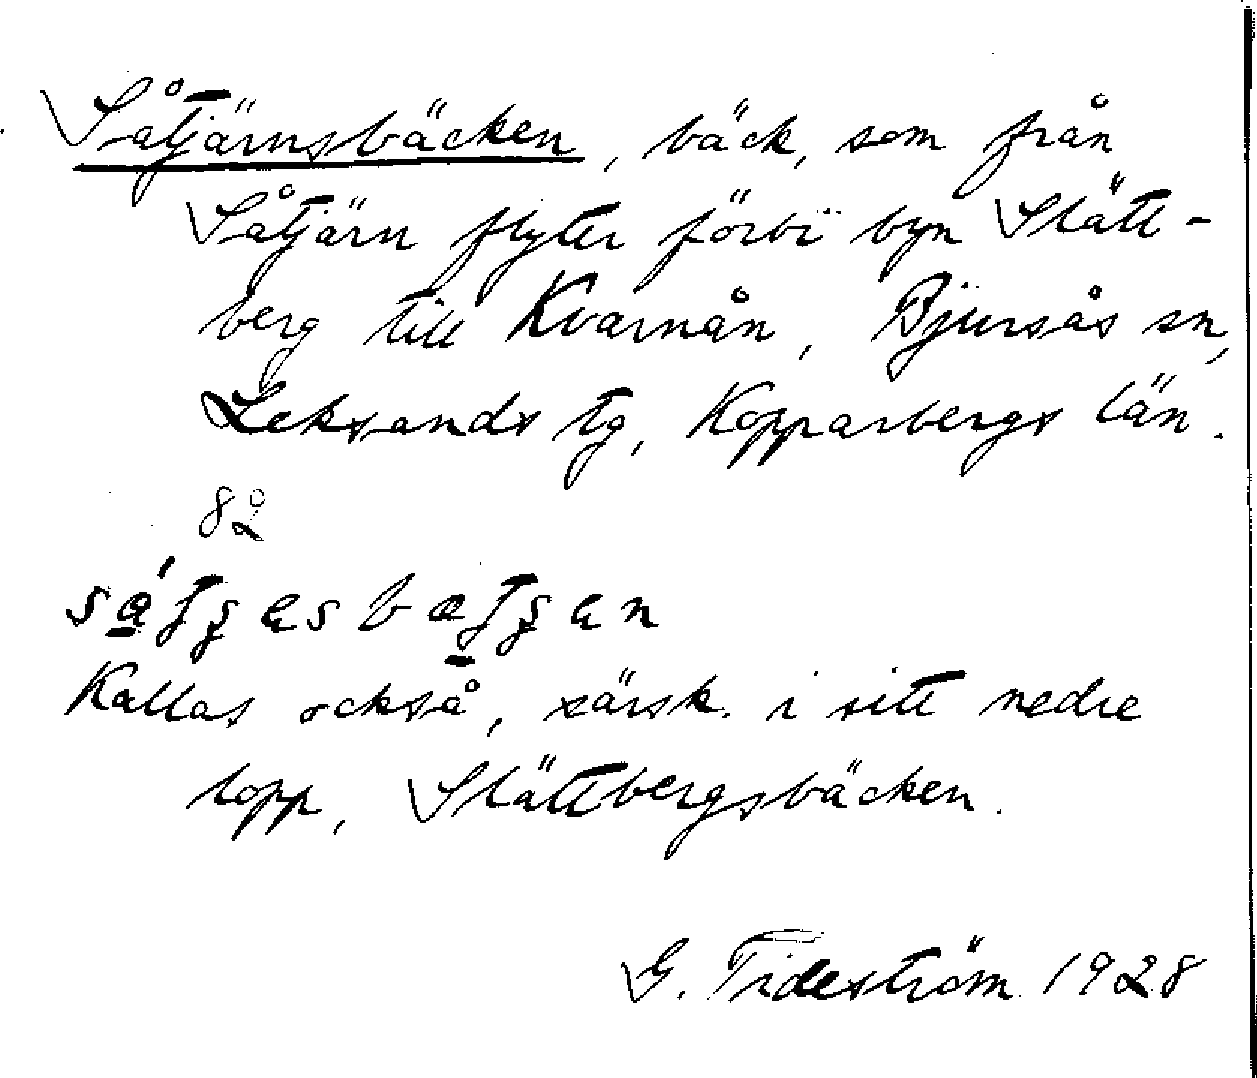 Såtjärnsbäcken, bäck, som från
Såtjärn flyter förbi byn Slätt-
berg till Kvarnån, Bjursås sn,
Leksands tg, Kopparbergs län.
82
Kallas också, särsk. i sitt nedre
lopp, Slättbergsbäcken.
G. Tideström 1928